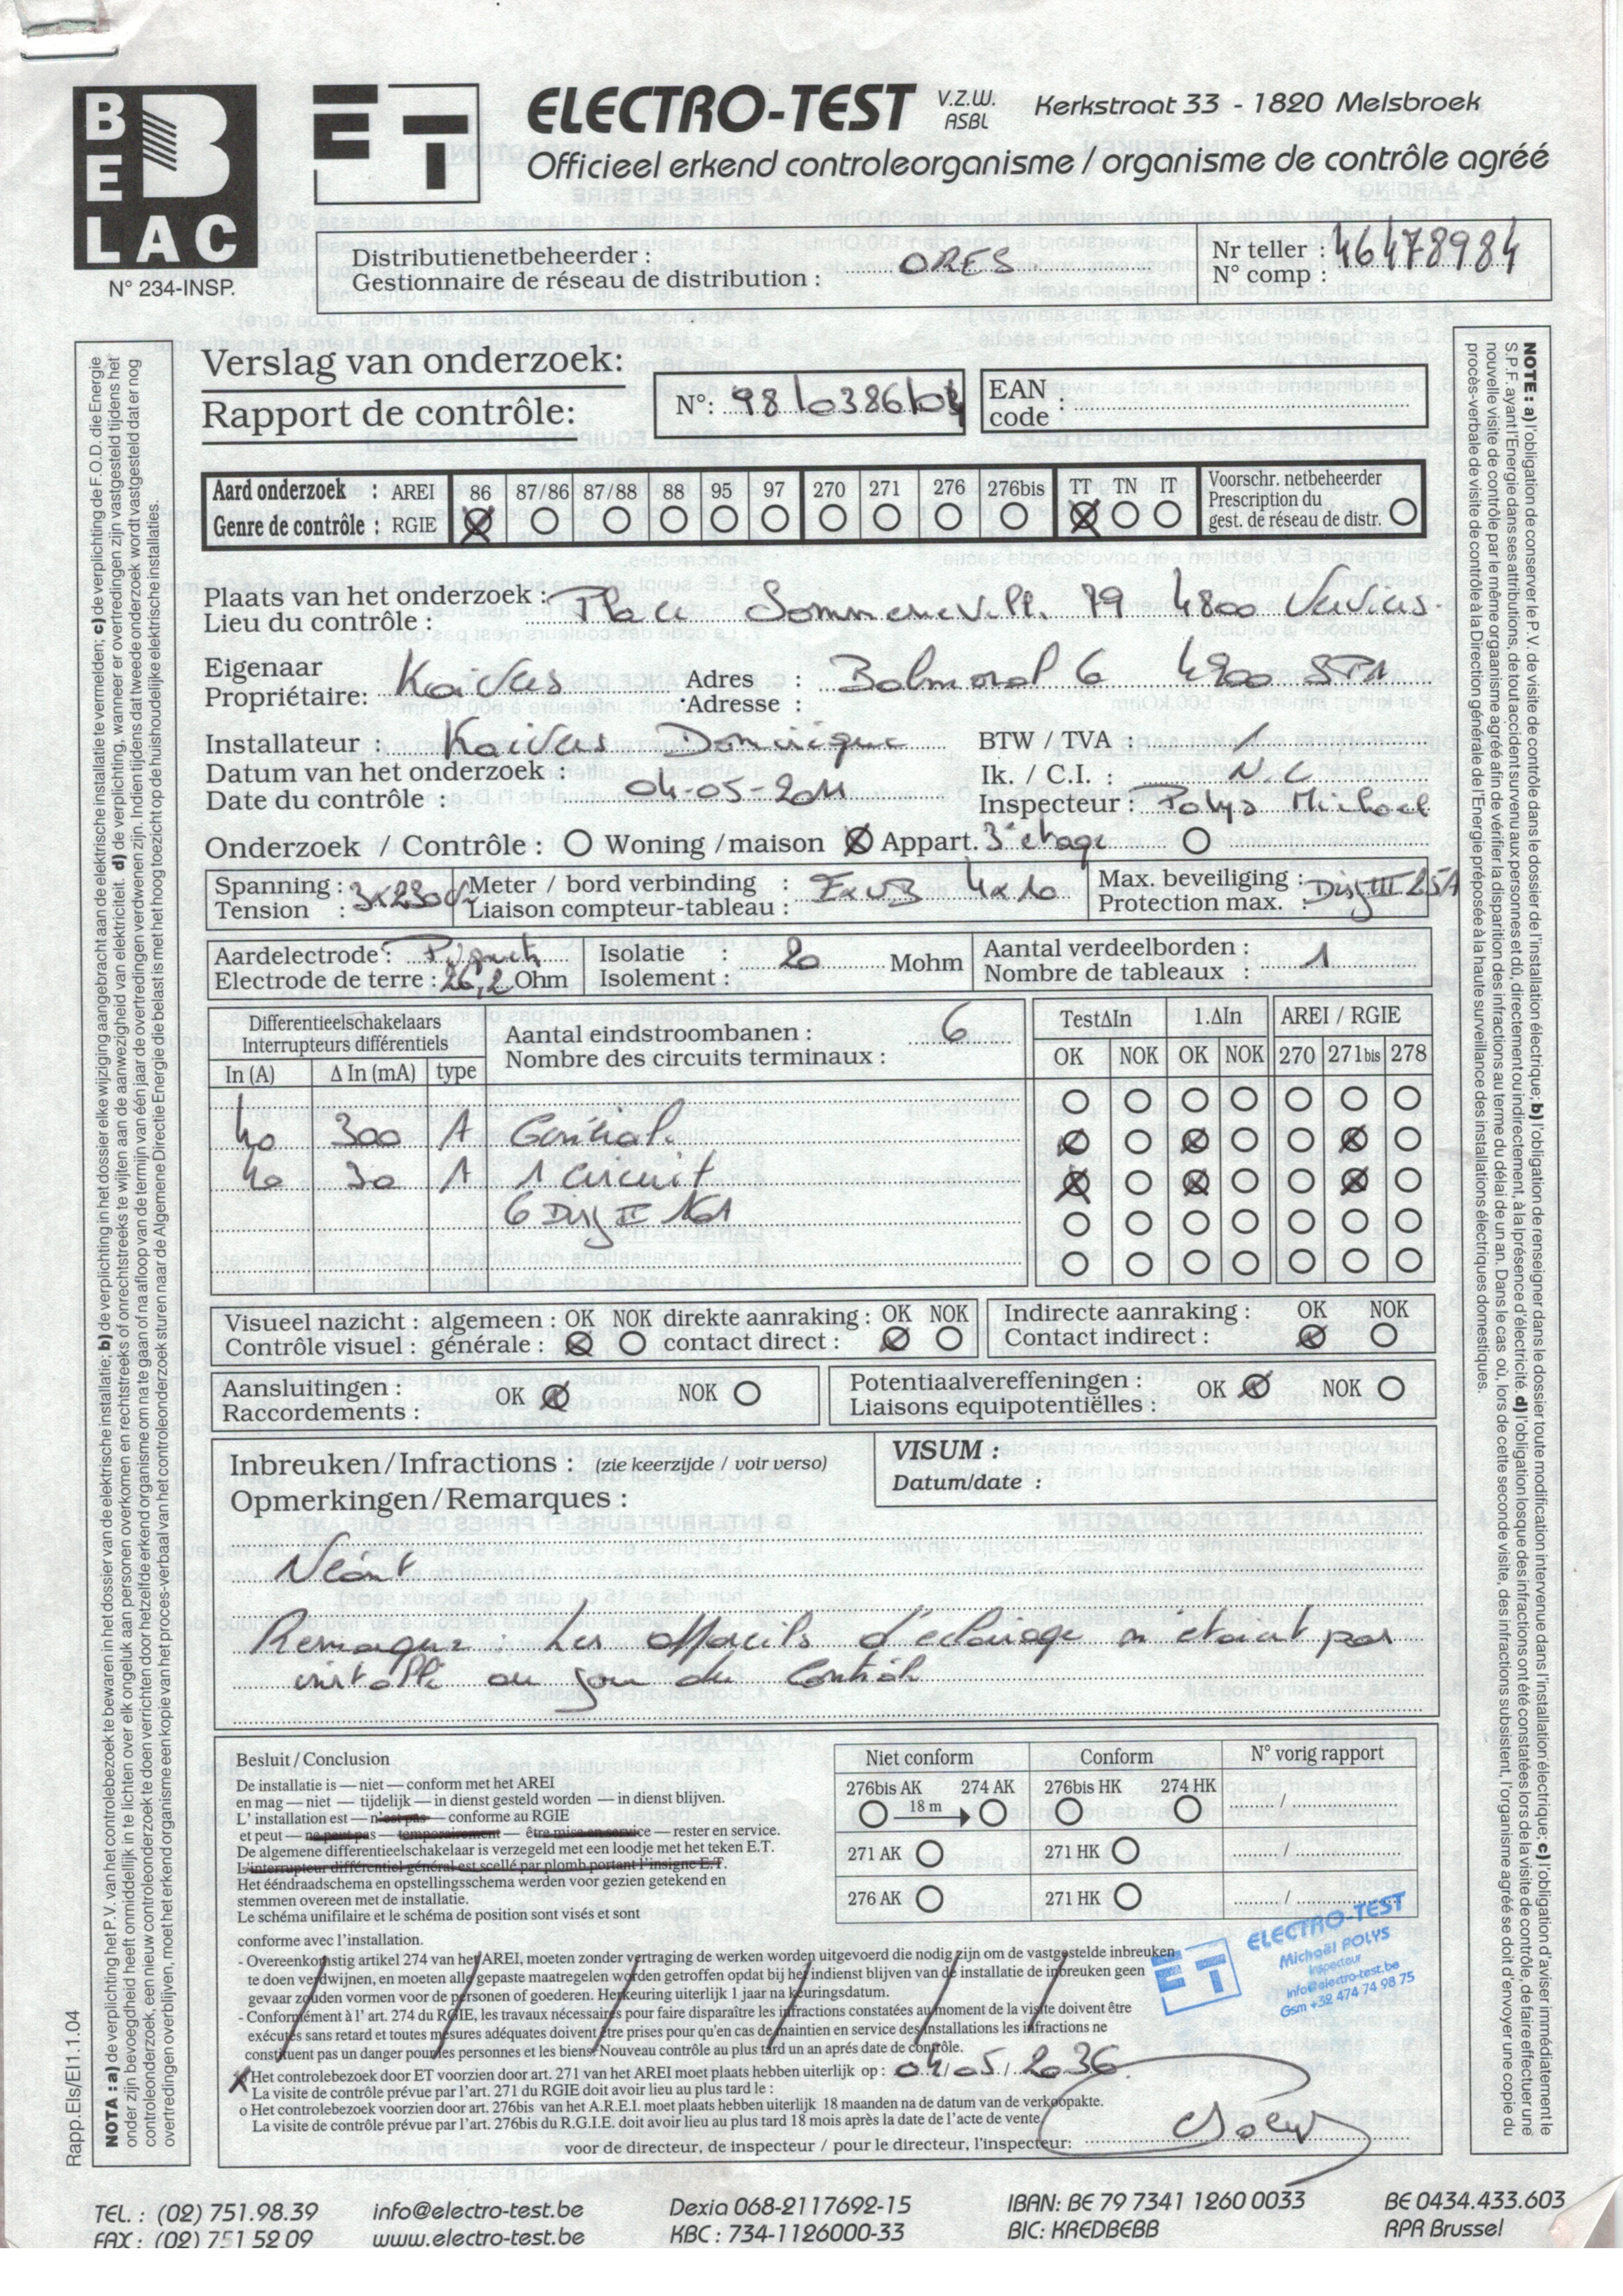 BELAC
N° 234-INSP.
ET
ELECTRO-TEST V.Z.W. ASBL Kerkstraat 33 - 1820 Melsbroek
Officieel erkend controleorganisme / organisme de contrôle agréé
Distributienetbeheerder :
Gestionnaire de réseau de distribution : ORES
Nr teller :
N° comp : 46478984
Verslag van onderzoek:
Rapport de contrôle:
N°: 98/0386/04
EAN code :
Aard onderzoek : AREI 86 87/86 87/88 88 95 97 270 271 276 276bis TT TN IT
Genre de contrôle : RGIE
Voorschr. netbeheerder
Prescription du
gest. de réseau de distr.
Plaats van het onderzoek :
Lieu du contrôle : Place 79 4800
Eigenaar
Propriétaire: Kaivas
Adres :
Adresse : Balmoral 6 4900 SPA
Installateur : Kaivas Dominique BTW / TVA : /
Datum van het onderzoek :
Date du contrôle : 04-05-2011
Ik. / C.I. : N.C
Inspecteur : Polys Michael
Onderzoek / Contrôle : Woning / maison Appart. 3° etage
Spanning :
Tension : 3x230
Meter / bord verbinding :
Liaison compteur-tableau : ExVB 4x10
Max. beveiliging :
Protection max. : Disj III 25A
Aardelectrode : Piquet
Electrode de terre : 26,2 Ohm
Isolatie :
Isolement : 20 Mohm
Aantal verdeelborden :
Nombre de tableaux : 1
Differentieelschakelaars
Interrupteurs différentiels
Aantal eindstroombanen :
Nombre des circuits terminaux : 6
TestΔIn 1.ΔIn AREI / RGIE
In (A) Δ In (mA) type
OK NOK OK NOK 270 271bis 278
40 300 A Général
40 30 A 1 circuit
6 Disj II 16A
Visueel nazicht : algemeen : OK NOK direkte aanraking : OK NOK
Contrôle visuel : générale : contact direct :
Indirecte aanraking : OK NOK
Contact indirect :
Aansluitingen :
Raccordements : OK NOK
Potentiaalvereffeningen :
Liaisons equipotentiëlles : OK NOK
Inbreuken/Infractions : (zie keerzijde / voir verso)
Opmerkingen/Remarques :
VISUM :
Datum/date :
Néant
Remarque : Les appareils d'éclairage n'étaient pas
installé au jour du contrôle
Besluit / Conclusion
De installatie is — niet — conform met het AREI
en mag — niet — tijdelijk — in dienst gesteld worden — in dienst blijven.
L' installation est — n'est pas — conforme au RGIE
et peut — ne peut pas — temporairement — être mise en service — rester en service.
De algemene differentieelschakelaar is verzegeld met een loodje met het teken E.T.
L'interrupteur différentiel général est scellé par plomb portant l'insigne E.T.
Het ééndraadschema en opstellingsschema werden voor gezien getekend en
stemmen overeen met de installatie.
Le schéma unifilaire et le schéma de position sont visés et sont
conforme avec l'installation.
Niet conform Conform N° vorig rapport
276bis AK 274 AK 276bis HK 274 HK
18 m
/
271 AK 271 HK /
276 AK 271 HK /
- Overeenkomstig artikel 274 van het AREI, moeten zonder vertraging de werken worden uitgevoerd die nodig zijn om de vastgestelde inbreuken
te doen verdwijnen, en moeten alle gepaste maatregelen worden getroffen opdat bij het indienst blijven van de installatie de inbreuken geen
gevaar zouden vormen voor de personen of goederen. Herkeuring uiterlijk 1 jaar na keuringsdatum.
- Conformément à l' art. 274 du RGIE, les travaux nécessaires pour faire disparaître les infractions constatées au moment de la visite doivent être
exécutés sans retard et toutes mesures adéquates doivent être prises pour qu'en cas de maintien en service des installations les infractions ne
constituent pas un danger pour les personnes et les biens. Nouveau contrôle au plus tard un an aprés date de contrôle.
Het controlebezoek door ET voorzien door art. 271 van het AREI moet plaats hebben uiterlijk op : 04/05/2036
La visite de contrôle prévue par l'art. 271 du RGIE doit avoir lieu au plus tard le :
o Het controlebezoek voorzien door art. 276bis van het A.R.E.I. moet plaats hebben uiterlijk 18 maanden na de datum van de verkoopakte.
La visite de contrôle prévue par l'art. 276bis du R.G.I.E. doit avoir lieu au plus tard 18 mois après la date de l'acte de vente.
voor de directeur, de inspecteur / pour le directeur, l'inspecteur:
ET ELECTRO-TEST
Michaël POLYS
Inspecteur
info@electro-test.be
Gsm +32 474 74 98 75
Rapp.Els/EI1.11.04
NOTA : a) de verplichting het P.V. van het controlebezoek te bewaren in het dossier van de elektrische installatie; b) de verplichting in het dossier elke wijziging aangebracht aan de elektrische installatie te vermelden; c) de verplichting de F.O.D. die Energie
onder zijn bevoegdheid heeft onmiddellijk in te lichten over elk ongeluk aan personen overkomen en rechtstreeks of onrechtstreeks te wijten aan de aanwezigheid van elektriciteit. d) de verplichting, wanneer er overtredingen zijn vastgesteld tijdens het
controleonderzoek, een nieuw controleonderzoek te doen verrichten door hetzelfde erkend organisme om na te gaan of na afloop van de termijn van één jaar de overtredingen verdwenen zijn. Indien tijdens dat tweede onderzoek wordt vastgesteld dat er nog
overtredingen overblijven, moet het erkend organisme een kopie van het proces-verbaal van het controleonderzoek sturen naar de Algemene Directie Energie die belast is met het hoog toezicht op de huishoudelijke elektrische installaties.
NOTE : a) l'obligation de conserver le P.V. de visite de contrôle dans le dossier de l'installation électrique; b) l'obligation de renseigner dans le dossier toute modification intervenue dans l'installation électrique; c) l'obligation d'aviser immédiatement le
S.P.F. ayant l'Energie dans ses attributions, de tout accident survenu aux personnes et dû, directement ou indirectement, à la présence d'électricité. d) l'obligation losque des infractions ont été constatées lors de la visite de contrôle, de faire effectuer une
nouvelle visite de contrôle par le même organisme agréé afin de vérifier la disparition des infractions au terme du délai de un an. Dans le cas où, lors de cette seconde visite, des infractions subsistent, l'organisme agréé se doit d'envoyer une copie du
procès-verbale de visite de contrôle à la Direction générale de l'Energie préposée à la haute surveillance des installations électriques domestiques.
TEL. : (02) 751.98.39 info@electro-test.be Dexia 068-2117692-15 IBAN: BE 79 7341 1260 0033 BE 0434.433.603
FAX : (02) 751 52 09 www.electro-test.be KBC : 734-1126000-33 BIC: KREDBEBB RPR Brussel